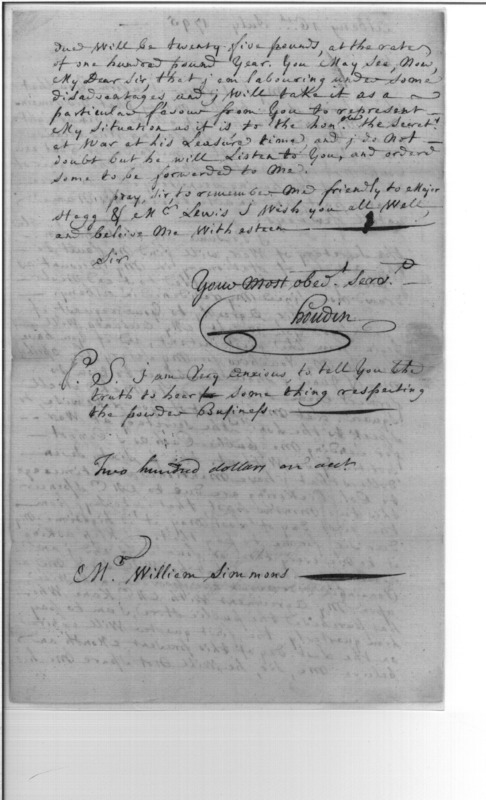 dued Will be twenty five pounds, at the rate
of one hundred pound Year. You May See, Now,
My Dear Sir, that j am labouring under Some
disadvantages and j Will take it as a
particular favour from You to represent
My Situation as it is to the honble the Secrety
at War at his Leasure time and j do Not
doubt but he will Listen to You, and order'd
Some to be forwarded to Me.
pray, Sir, to remember Me friendly to Major
Stagg & Mr Lewis I Wish you all Well,
an beleive Me With esteem
Sir
Your Most obedt Servt
houdin
P. S. I am Very anxious, to tell You the
truth to hear Some thing respecting
the powder Business
Two hundred dollars on acct
Mr William Simmons